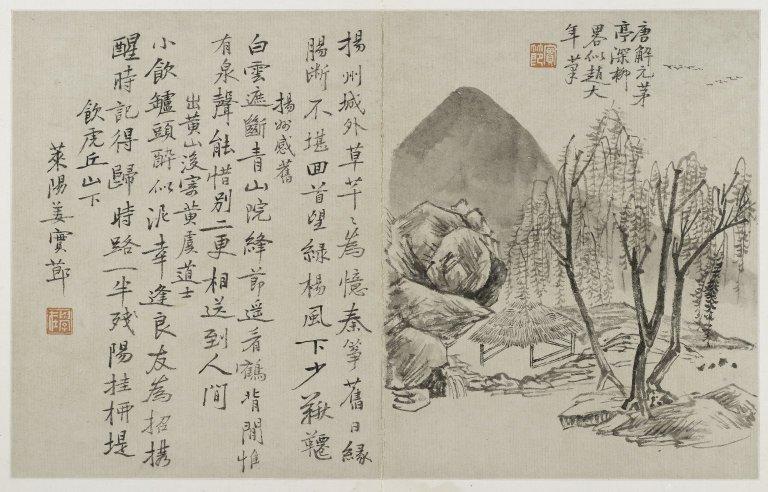 唐解元茅
亭深柳
畧似趙大
年筆
實節
揚州城外草芊〻為憶秦箏舊日緣
腸斷不堪回首望綠楊風下少鞦韆
揚州感舊
白雲遮斷青山院絳節遥看鶴背閒惟
有泉聲能惜別二更相送到人間
出黃山後寄黃虞道士
小飲鑪頭醉似泥幸逢良友為招携
醒時記得歸時路一半殘陽挂堤
飲虎丘山下
萊陽姜實節